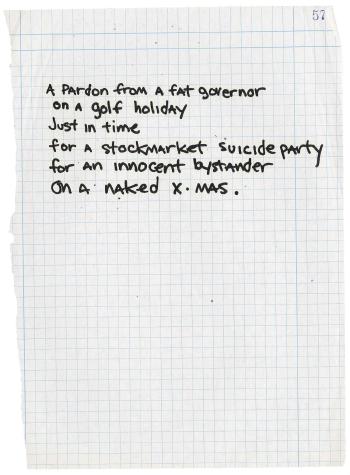 57
A PARdon fRom A fAt goveRnor
on A golf holidAy
Just in time
foR A stockmARket suicide pARty
foR An innocent bystAndeR
On A nAked X. MAS.